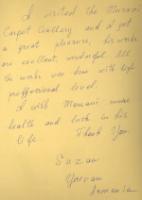 I visited the Mumani
Carpet Gallery and I got
a great pleasure, his works
are excellent, wonderful. All
the works was done with high
proffesional level.
I wish Mamani more
health and luck in his
life. Thank You.
Yerevan
Armenia